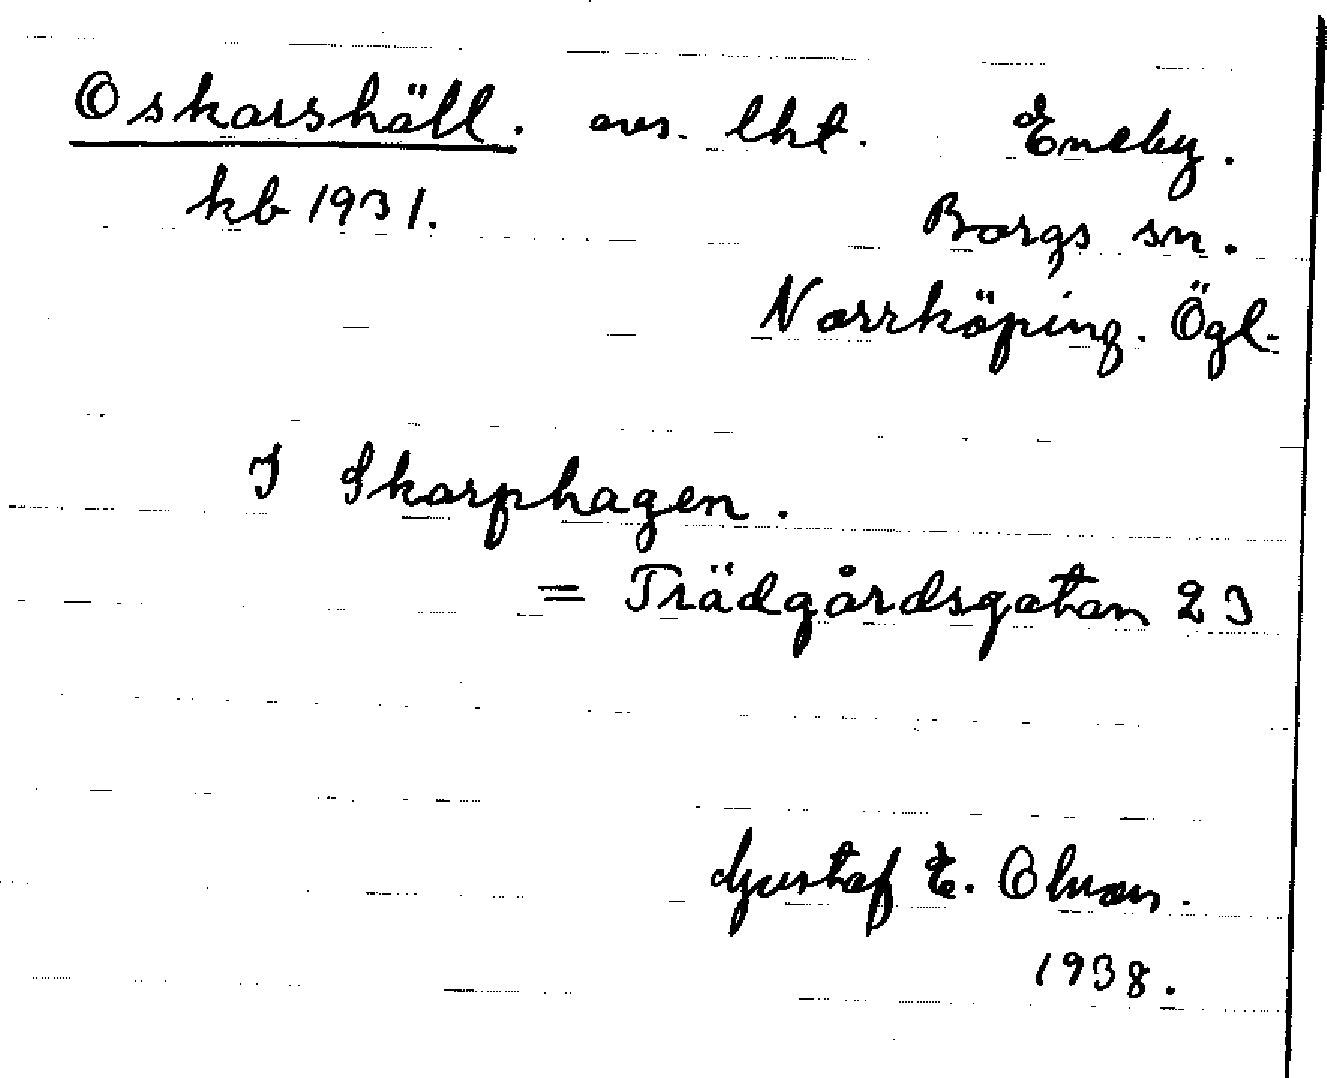 Oskarshäll. avs. lht. Eneby.
kb 1931. Borgs sn.
Norrköping. Ögl.
I Skarphagen.
= Trädgårdsgatan 23
Gustaf E. Olson.
1938.